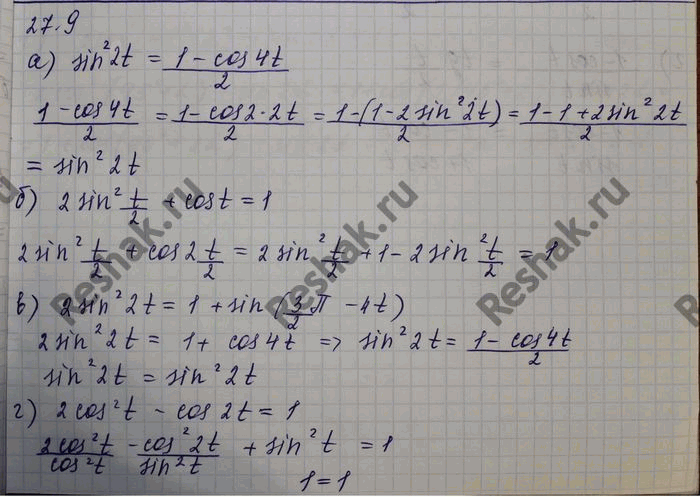 27.9
а) sin²2t = (1 - cos4t)/2
(1 - cos4t)/2 = (1 - cos2·2t)/2 = (1-(1-2sin²2t))/2 = (1-1+2sin²2t)/2
= sin²2t
б) 2sin² t/2 + cost = 1
2sin² t/2 + cos2 t/2 = 2sin² t/2 + 1 - 2sin² t/2 = 1
в) 2sin²2t = 1 + sin(3/2 π - 4t)
2sin²2t = 1 + cos4t => sin²2t = (1 - cos4t)/2
sin²2t = sin²2t
г) 2cos²t - cos2t = 1
2cos²t/cos²t - cos²2t/sin²t + sin²t = 1
1 = 1
Reshak.ru
Reshak.ru
Reshak.ru